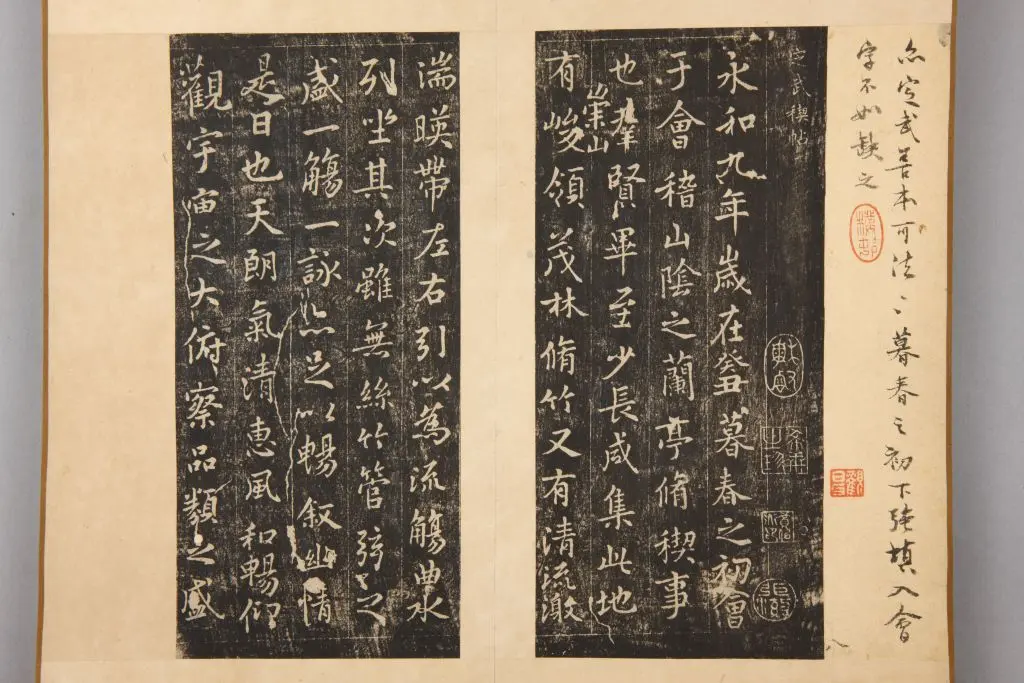 亦定武善本可法々暮春之初下強填入會
字不如缺之
定武禊帖
永和九年歲在癸丑暮春之初會
于會稽山陰之蘭亭脩稧事
也羣賢畢至少長咸集此地
有崇山峻領茂林脩竹又有清流激
湍暎帶左右引以為流觴曲水
列坐其次雖無絲竹管弦之
盛一觴一詠亦足以暢敘幽情
是日也天朗氣清惠風和暢仰
觀宇宙之大俯察品類之盛